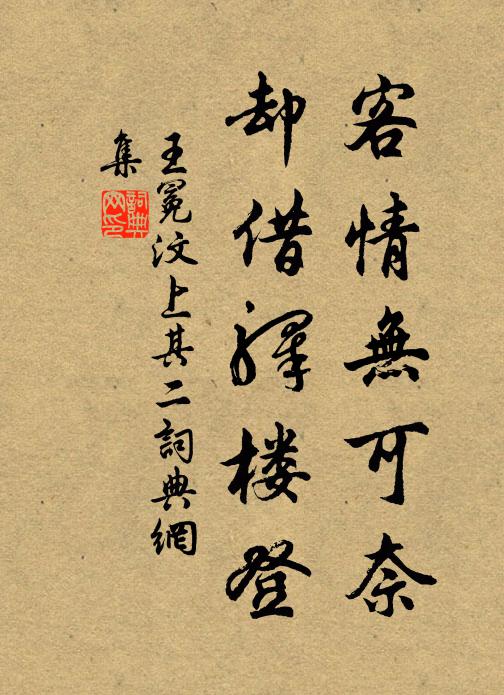 客情無可奈
却借驛楼登
王冕汶上其二詞典網
集
詞典网印